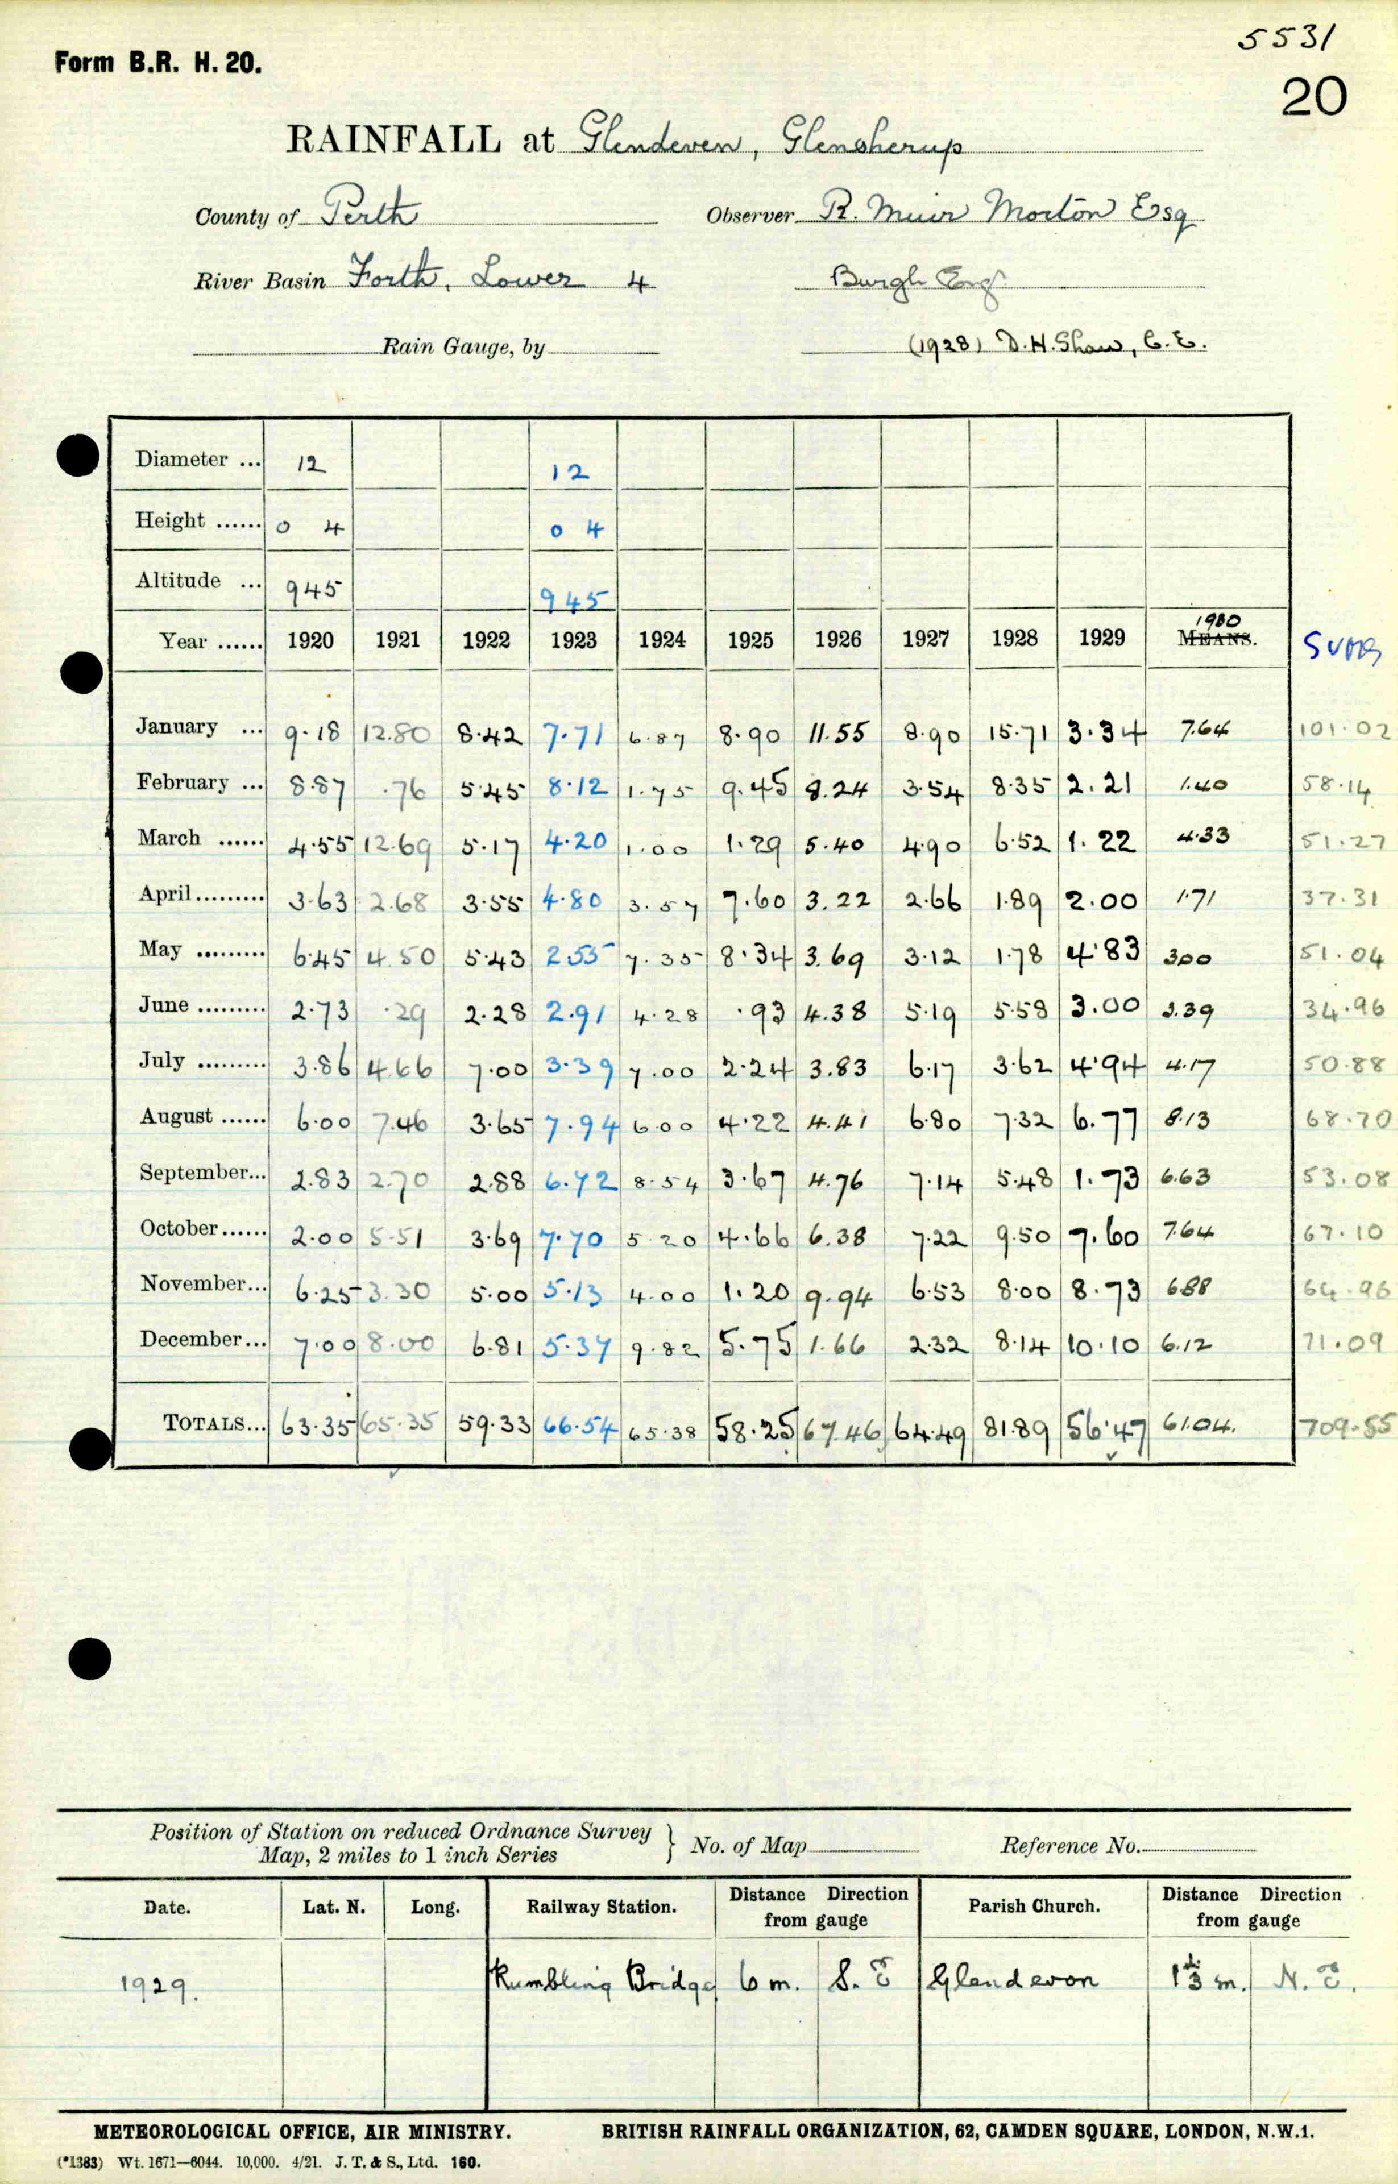 5531
Form B.R. H. 20.
20
RAINFALL at Glendeven, Glensherup
County of Perth Observer R. Muir Morton Esq
River Basin Forth, Lower 4 Burgh Eng.
Rain Gauge, by (1928) D.H. Shaw, C.E.
Diameter ... 12 12
Height ...... 0 4 0 4
Altitude ... 945 945
Year ...... 1920 1921 1922 1923 1924 1925 1926 1927 1928 1929 1930 MEANS. Sums
January ... 9.18 12.80 8.42 7.71 6.87 8.90 11.55 8.90 15.71 3.34 7.64 101.02
February ... 8.87 .76 5.45 8.12 1.75 9.45 8.24 3.54 8.35 2.21 1.40 58.14
March ...... 4.55 12.69 5.17 4.20 1.00 1.29 5.40 4.90 6.52 1.22 4.33 51.27
April......... 3.63 2.68 3.55 4.80 3.57 7.60 3.22 2.66 1.89 2.00 1.71 37.31
May ......... 6.45 4.50 5.43 2.55 7.35 8.34 3.69 3.12 1.78 4.83 3.00 51.04
June ......... 2.73 .29 2.28 2.91 4.28 .93 4.38 5.19 5.58 3.00 3.39 34.96
July ......... 3.86 4.66 7.00 3.39 7.00 2.24 3.83 6.17 3.62 4.94 4.17 50.88
August ...... 6.00 7.46 3.65 7.94 6.00 4.22 4.41 6.80 7.32 6.77 8.13 68.70
September... 2.83 2.70 2.88 6.72 8.54 3.67 4.76 7.14 5.48 1.73 6.63 53.08
October...... 2.00 5.51 3.69 7.70 5.20 4.66 6.38 7.22 9.50 7.60 7.64 67.10
November... 6.25 3.30 5.00 5.13 4.00 1.20 9.94 6.53 8.00 8.73 6.88 64.96
December... 7.00 8.00 6.81 5.37 9.82 5.75 1.66 2.32 8.14 10.10 6.12 71.09
TOTALS... 63.35 65.35 59.33 66.54 65.38 58.25 67.46 64.49 81.89 56.47 61.04. 709.55
Position of Station on reduced Ordnance Survey
Map, 2 miles to 1 inch Series } No. of Map Reference No.
Date. Lat. N. Long. Railway Station. Distance Direction from gauge Parish Church. Distance Direction from gauge
1929. Rumbling Bridge 6 m. S. E Glendevon 1⅓ m. N. E.
METEOROLOGICAL OFFICE, AIR MINISTRY. BRITISH RAINFALL ORGANIZATION, 62, CAMDEN SQUARE, LONDON, N.W.1.
(*1383) Wt. 1671—6044. 10,000. 4/21. J. T. & S., Ltd. 160.